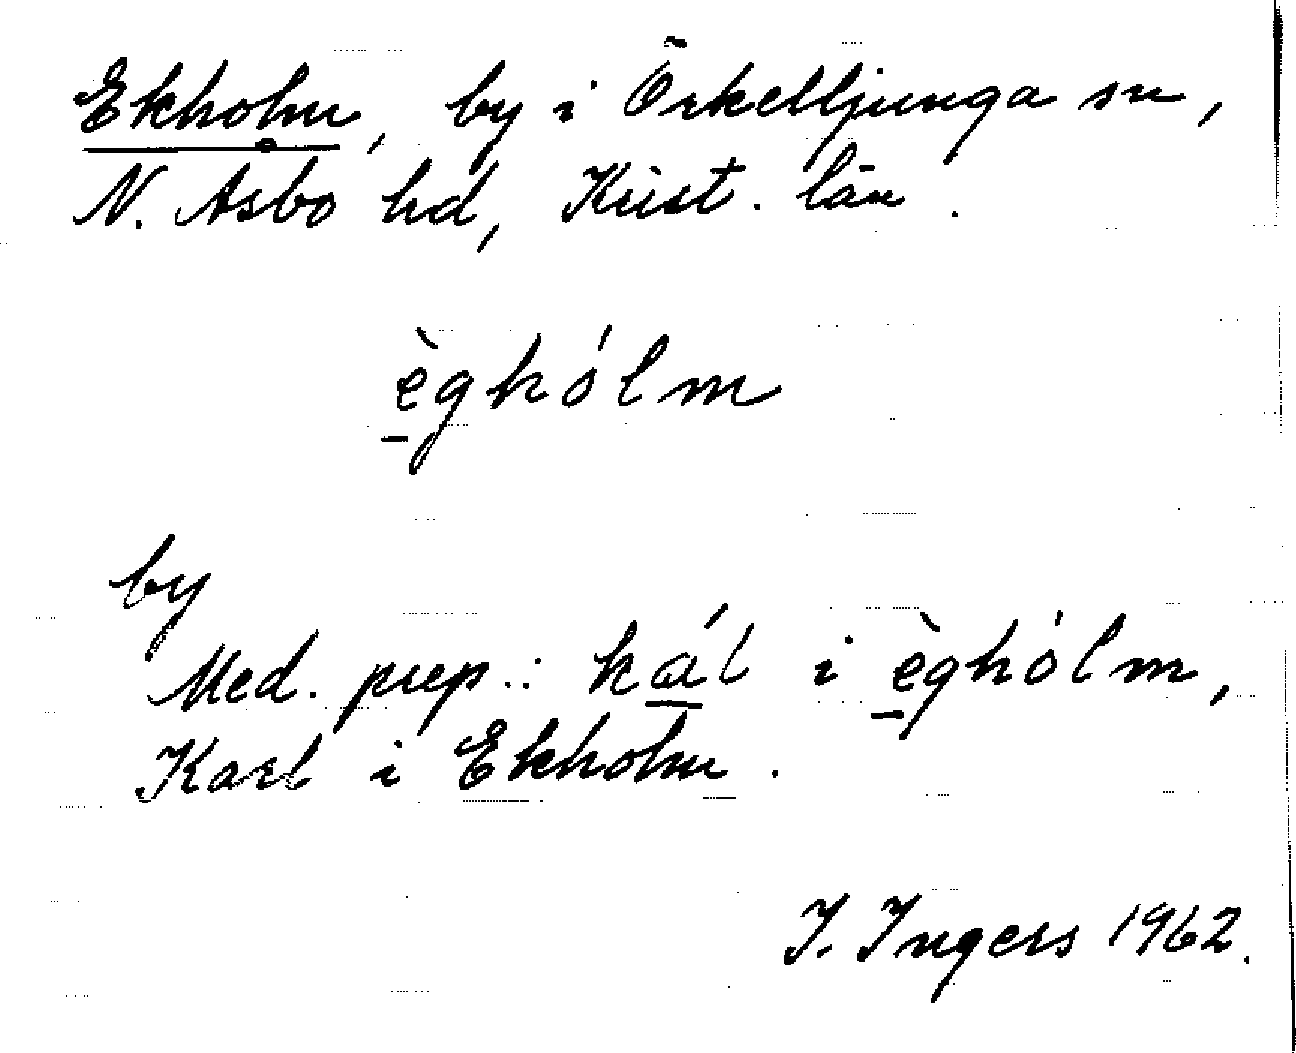 Ekholm, by i Örkelljunga sn,
N. Åsbo hd, Krist. län.
è̱ghólm
by
Med. prep.: ká̱l i è̱ghólm,
Karl i Ekholm.
I. Ingers 1962.